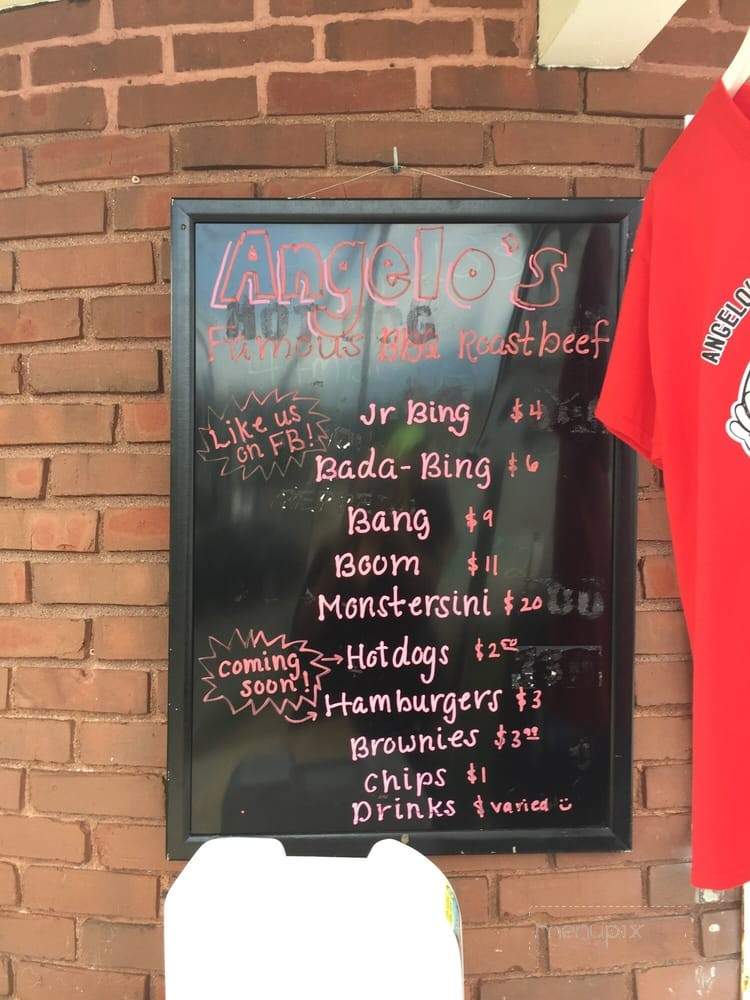 Angelo's
Famous BBQ Roastbeef
Like us
on FB!
Jr Bing $4
Bada-Bing $6
Bang $9
Boom $11
Monstersini $20
coming
soon!
Hotdogs $2.50
Hamburgers $3
Brownies $3.99
Chips $1
Drinks $ varied
ANGELO
menupix